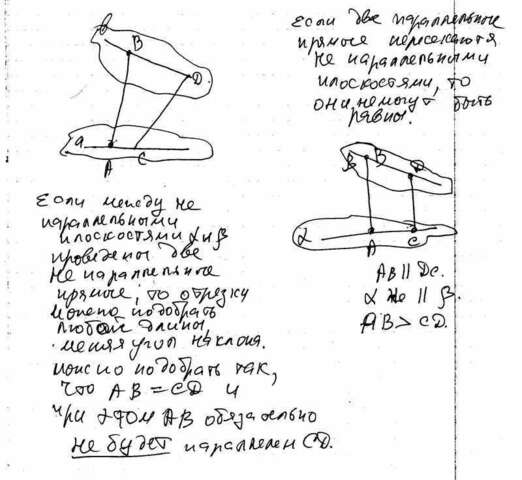 Если две параллельные
прямые пересекаются
не параллельными
плоскостями, то
они не могут быть
равны.
b
B
D
a
A
C
β
B
D
α
A
C
AB || DC.
α не || β.
AB > CD.
Если между не
параллельными
плоскостями α и β
проведены две
не параллельные
прямые, то отрезки
можно подобрать
любой длины,
меняя угол наклона.
можно подобрать так,
что AB = CD и
при этом AB обязательно
не будет параллелен CD.